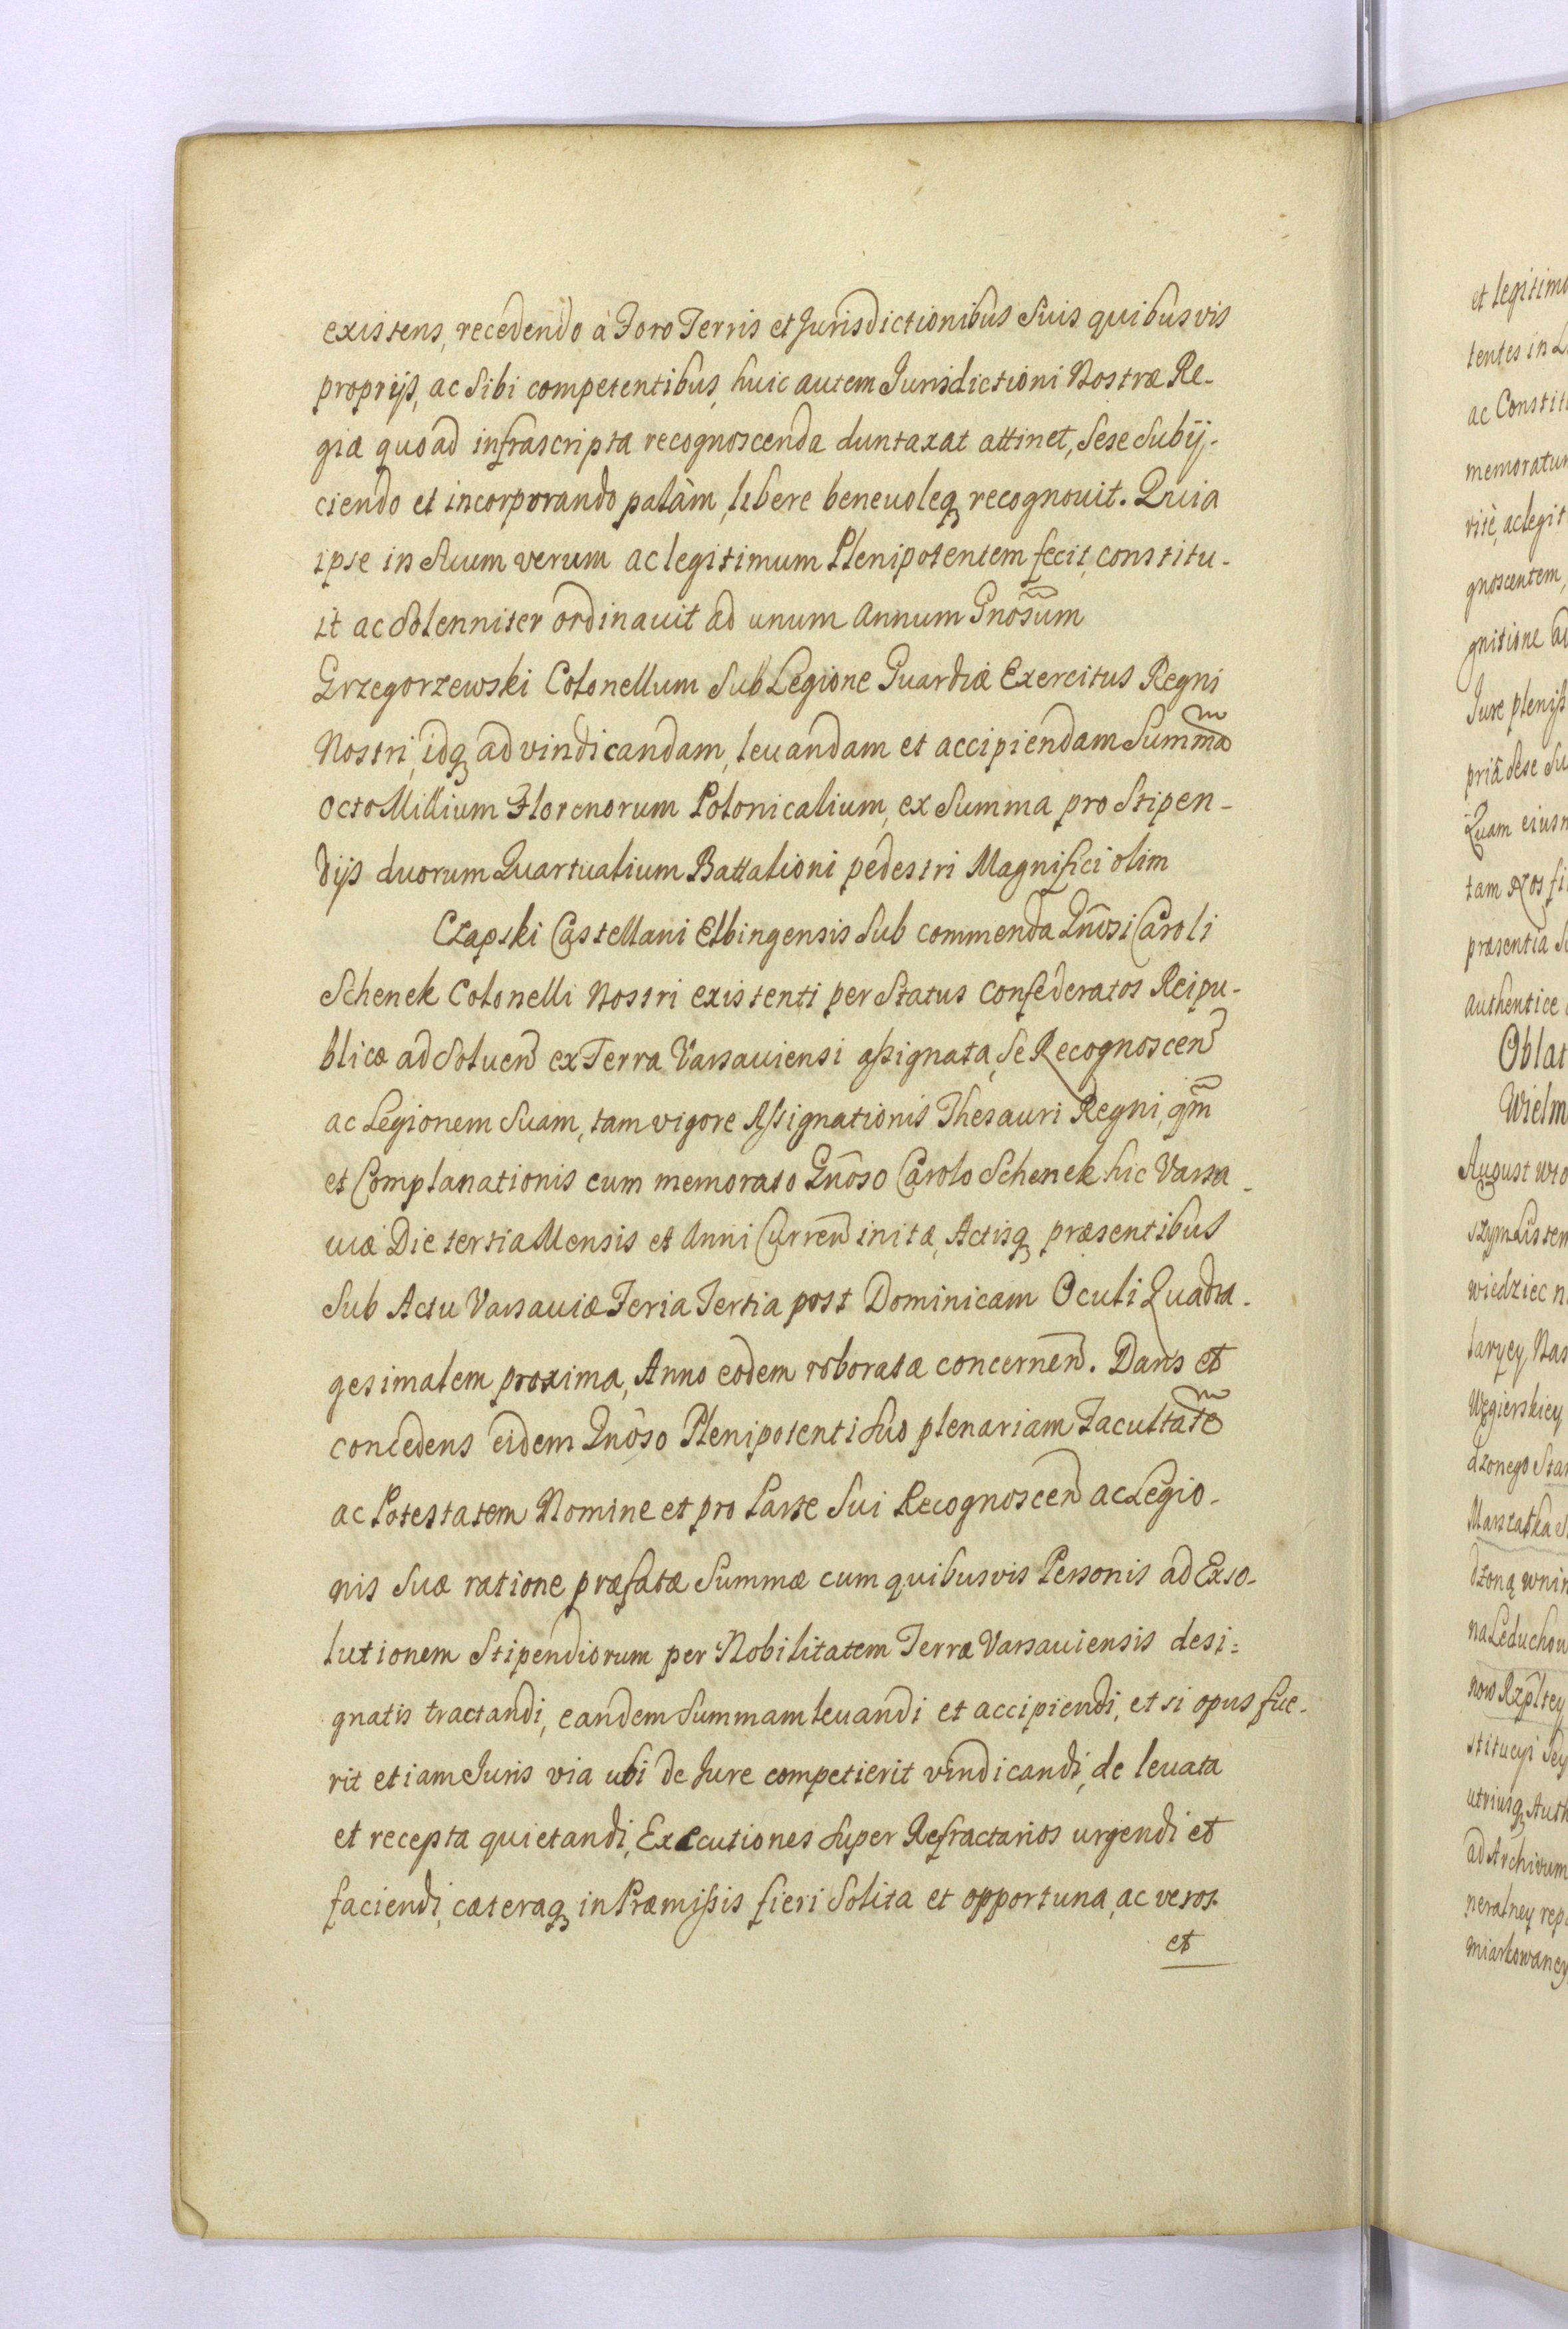 existens, recedendo à Foro Terris et Jurisdictionibus Suis quibusvis
proprijs, ac Sibi competentibus, huic autem Jurisdictioni Nostræ Re-
giæ quoad infrascripta recognoscenda duntaxat attinet, Sese Subij-
ciendo et incorporando palàm, libere beneuoleq recognouit. Quia
ipse in Suum verum ac legitimum Plenipotentem fecit, constitu-
it ac Solenniter ordinauit ad unum Annum Gnosum
Grzegorzewski Colonellum Sub Legione Guardiæ Exercitus Regni
Nostri, idq ad vindicandam, leuandam et accipiendam Summam
Octo Millium Florenorum Polonicalium, ex Summa pro Stipen-
dijs duorum Quartualium Battalioni pedestri Magnifici olim
Czapski Castellani Elbingensis Sub commenda Gnosi Caroli
Schenek Colonelli Nostri existenti per Status Confederatos Reipu-
blicæ ad Soluen ex Terra Varsauiensi assignata, Se Recognoscen
ac Legionem Suam, tam vigore Assignationis Thesauri Regni, qm
et Complanationis cum memorato Gnoso Carolo Schenek hic Varsa-
uiæ Die tertia Mensis et Anni Curren initæ, Actisq præsentibus
Sub Actu Varsauiæ Feria Tertia post Dominicam Oculi Quadra-
gesimalem proxima, Anno eodem roboratæ concernen. Dans et
concedens eidem Gnoso Plenipotenti Suo plenariam Facultatem
ac Potestatem Nomine et pro Parte Sui Recognoscen ac Legio-
nis Suæ ratione præfatæ Summæ cum quibusvis Personis ad Exso-
lutionem Stipendiorum per Nobilitatem Terræ Varsauiensis desi=
gnatis tractandi, eandem Summam leuandi et accipiendi, et si opus fue-
rit etiam Juris via ubi de Jure competierit vindicandi, de leuata
et recepta quietandi, Executiones Super Refractarios urgendi et
faciendi, cæteraq in Præmissis fieri Solita et opportuna, ac veros.
et
et legitimo
tentes in
ac Constit
memoratum
ritè, ac legit
gnoscentem,
gnitione
Jure pleniss
priâ Sese Su
Quam eius
tam Nos fi
præsentia
authentice
Oblat
Wielm
August wto
szym Listem
wiedziec
laryey Nas
Węgierskiey
dzonego Sta
Marszałka
dzoną wnin
na Leduchow
now Rzpltey
stitucyi Sey
utriusq Auth
ad Archivum
neralney rep
miarkowaney